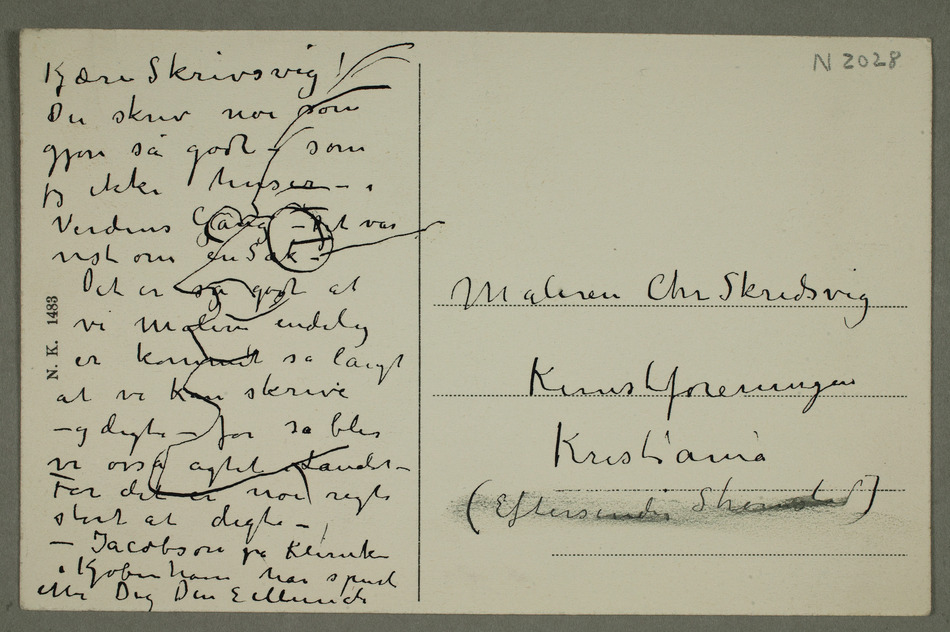 Kjære Skrivsvig!
Du skrev noe som
gjør så godt – som
jeg ikke huser – i
Verdens Gang – Det var
vist om en Sak –
Det er så godt at
vi malere endelig
er kommet så langt
at vi kan skrive
– og digte – for så blir
vi også agtet i Landet –
For det er noe rigtig
stort at digte –
– Jacobson på Kliniken
i Kjøbenhavn har spurt
efter Dig Din E Munch
N. K. 1483
N 2028
Maleren Chr Skredsvig
Kunstforeningen
Kristiania
(Eftersendes )